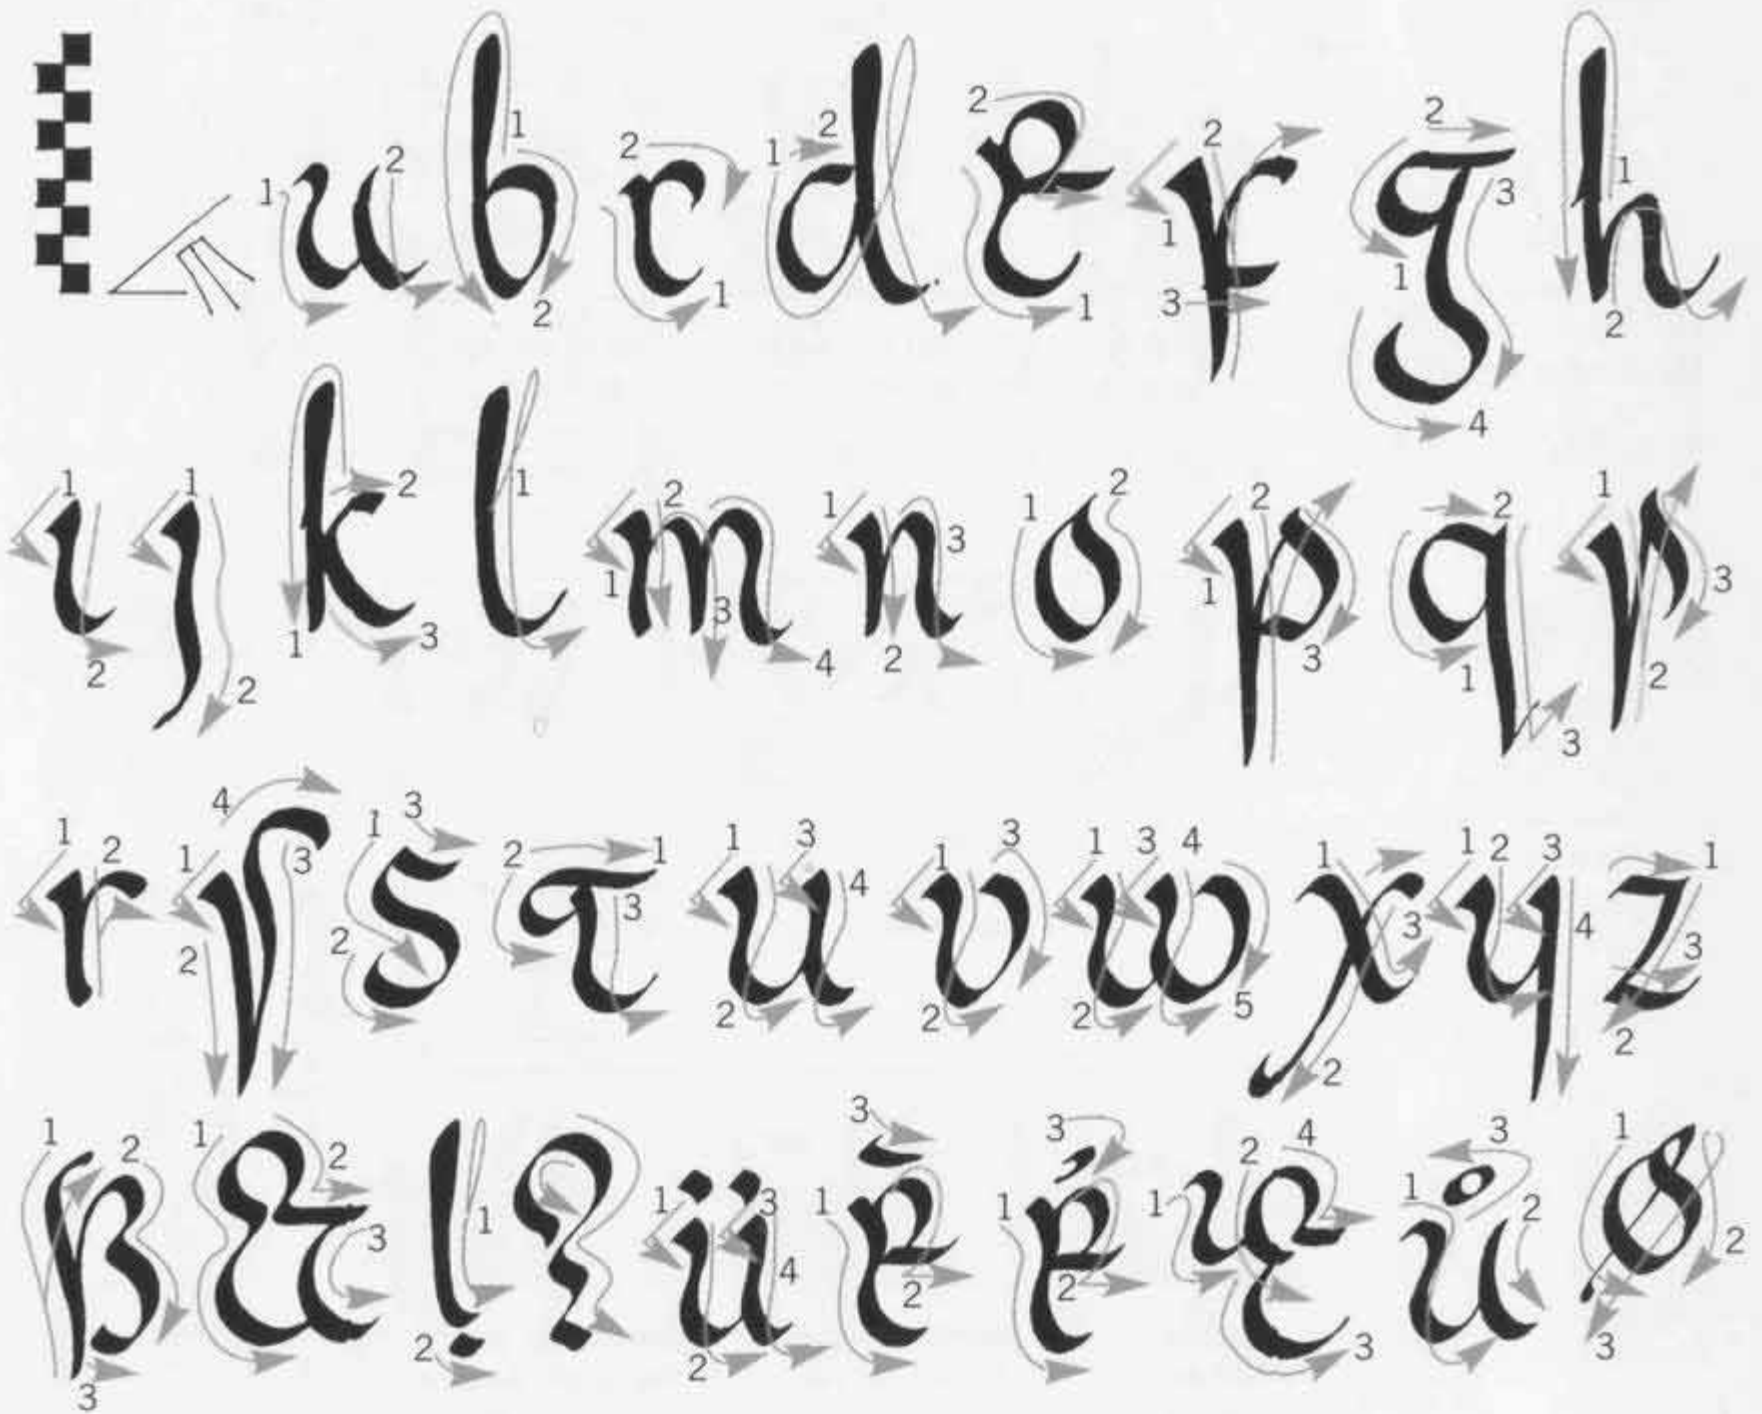 a b c d e f g h
i j k l m n o p q r
r ſ s t u v w x y z
ß & ! ? ü è é æ å ø